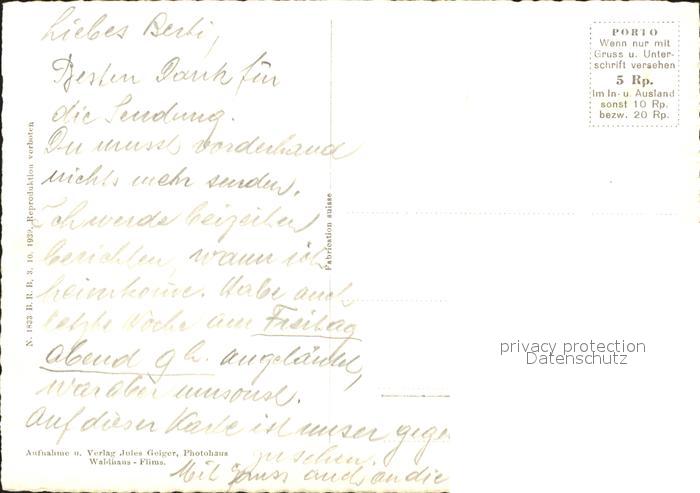 Liebes Berti,
Besten Dank für
die Sendung.
Du musst vorderhand
nichts mehr senden.
Ich werde beizeiten
berichten, wann ich
heimkomme. Habe auch
letzte Woche am Freitag
abend 9 h. angeläutet,
war aber umsonst.
Auf dieser Karte ist unser gege
zu sehen.
Mit Gruss auch an die
Aufnahme u. Verlag Jules Geiger, Photohaus
Waldhaus - Flims.
N. 1833 B. R. B. 3. 10. 1939. Reproduktion verboten
Fabrication suisse
PORTO
Wenn nur mit
Gruss u. Unter-
schrift versehen
5 Rp.
Im In- u. Ausland
sonst 10 Rp.
bezw. 20 Rp.
privacy protection
Datenschutz